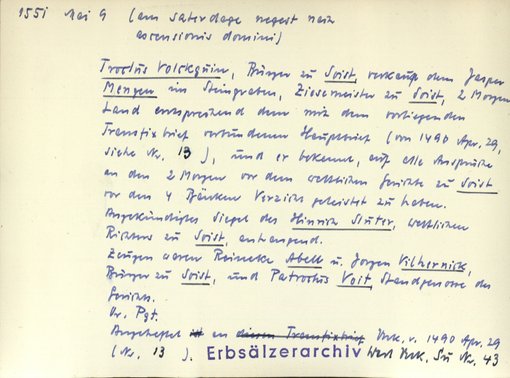 1551 Mai 9 (am saterdage negest nach
ascensionis domini)
Troctus Volckquin, Bürger zu Soist, verkauft dem Jasper
Mengen im Steingraben, Ziesemeister zu Soist, 2 Morgen
Land entsprechend dem mit dem vorliegenden
Transfixbrief verbundenen Hauptbrief (von 1490 Apr. 29,
siehe Nr. 13), und er bekennt, auf alle Ansprüche
an den 2 Morgen vor dem weltlichen Gerichte zu Soist
vor den 4 Bänken Verzicht geleistet zu haben.
Angekündigtes Siegel des Hinrich Sluter, weltlichen
Richters zu Soist, anhangend.
Zeugen waren Reineke Abell u. Jorgen Vilthernisk,
Bürger zu Soist, und Patroclus Voit, Standgenosse des
Gerichts.
Or. Pgt.
Angeheftet ist an diesen Transfixbrief Urk. v. 1490 Apr. 29
(Nr. 13). Erbsälzerarchiv Werl Urk. Nr. 43